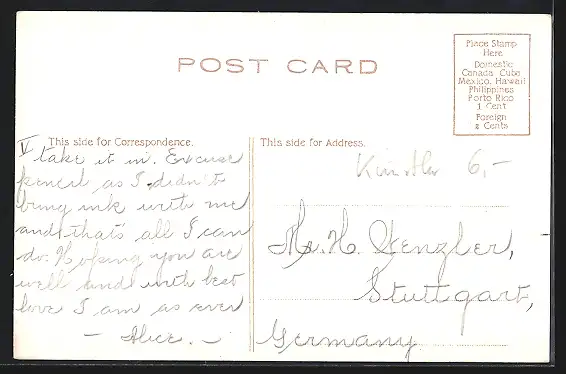 POST CARD
Place Stamp
Here
Domestic
Canada Cuba
Mexico, Hawaii
Philippines
Porto Rico
1 Cent
Foreign
2 Cents
This side for Correspondence.
V take it in. Excuse
pencil as I didn't
bring ink with me
and that's all I can
do. Hoping you are
well and with best
love I am as ever
– Alice. –
This side for Address.
Künstler 6,–
H. Genzler,
Stuttgart,
Germany